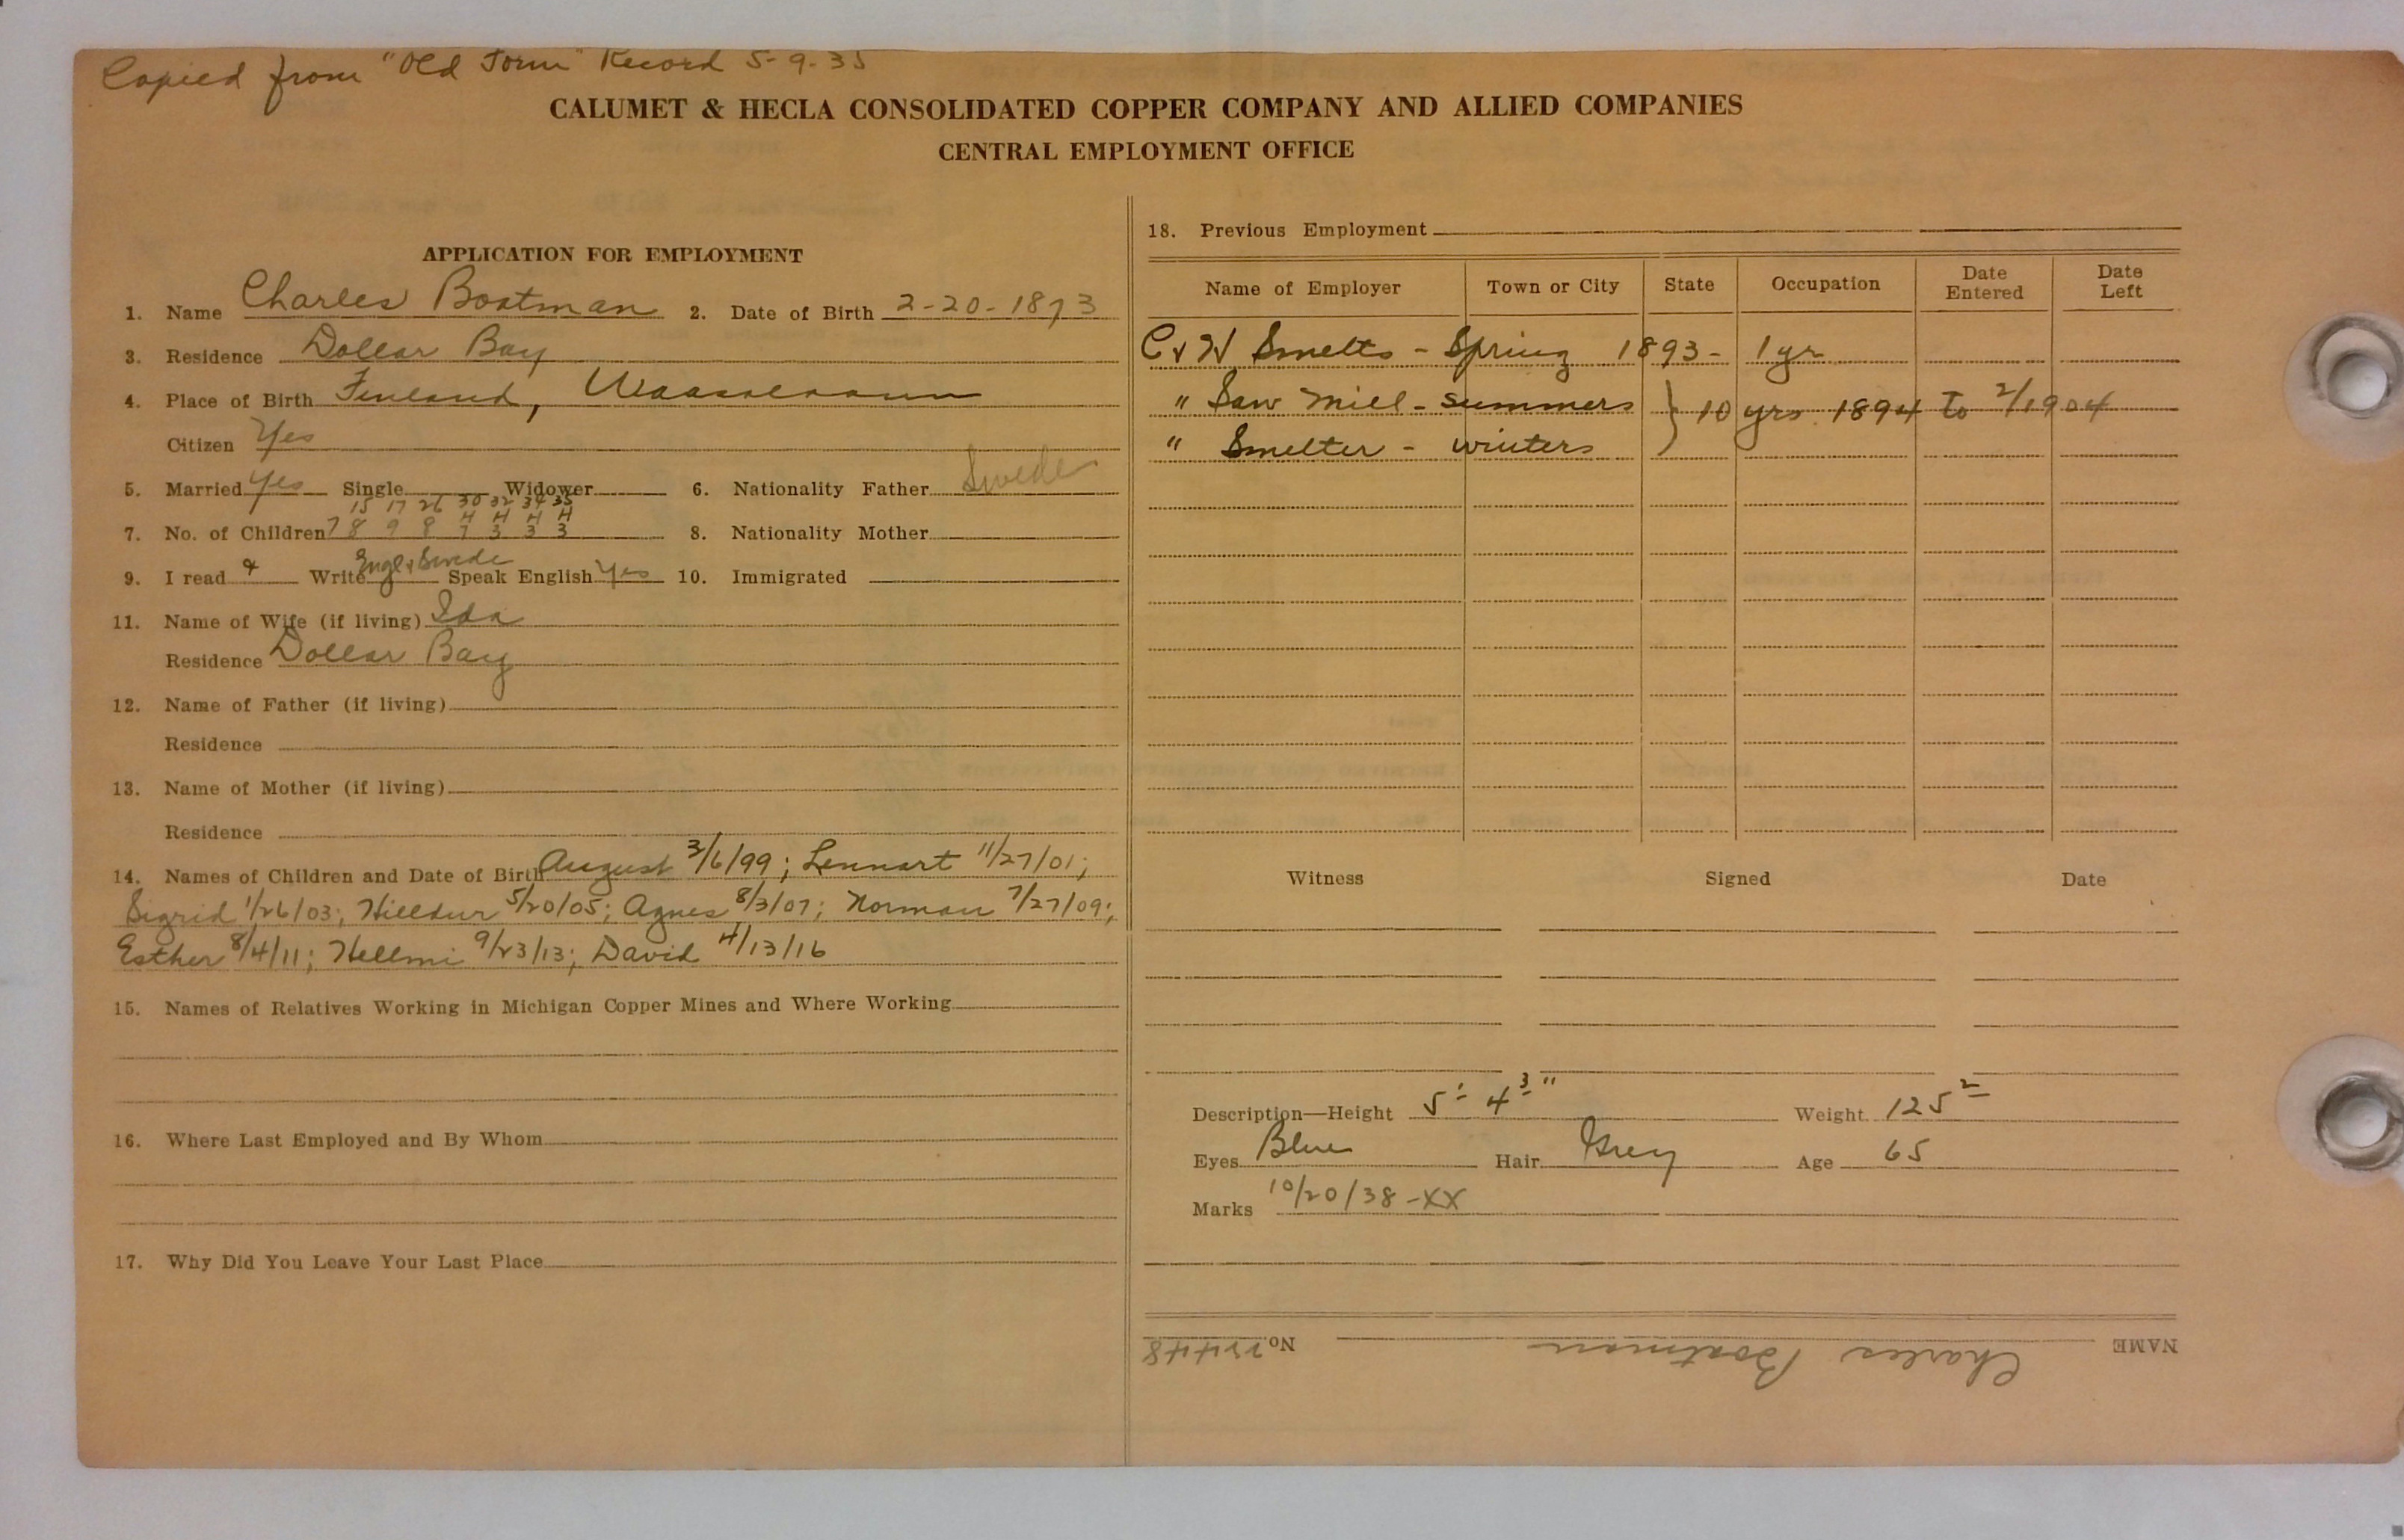 Copied from "Old Form" Record 5-9-35
CALUMET & HECLA CONSOLIDATED COPPER COMPANY AND ALLIED COMPANIES
CENTRAL EMPLOYMENT OFFICE
APPLICATION FOR EMPLOYMENT
1. Name Charles Boatman 2. Date of Birth 2-20-1873
3. Residence Dollar Bay
4. Place of Birth Finland,
Citizen Yes
5. Married Yes Single Widower 6. Nationality Father Swede
15 17 26 30 32 34 35
H H H H
7. No. of Children 7 8 9 8 7 3 3 3 8. Nationality Mother
Engl & Swede
9. I read & Write Speak English Yes 10. Immigrated
11. Name of Wife (if living) Ida
Residence Dollar Bay
12. Name of Father (if living)
Residence
13. Name of Mother (if living)
Residence
14. Names of Children and Date of Birth August 3/6/99; Lennart 11/27/01;
Sigrid 1/26/03; Hilldur 5/20/05; Agnes 8/3/07; Norman 7/27/09;
Esther 8/4/11; Hellmi 9/23/13; David 4/13/16
15. Names of Relatives Working in Michigan Copper Mines and Where Working
16. Where Last Employed and By Whom
17. Why Did You Leave Your Last Place
18. Previous Employment
Name of Employer Town or City State Occupation Date Entered Date Left
C & H Smelts - Spring 1893 - 1 yr
" Saw Mill - summers } 10 yrs. 1894 to 2/1904
" Smelter - winters
Witness Signed Date
Description—Height 5' 4 3" Weight 125 2
Eyes Blue Hair Grey Age 65
Marks 10/20/38 - XX
NAME Charles Boatman No. 22448